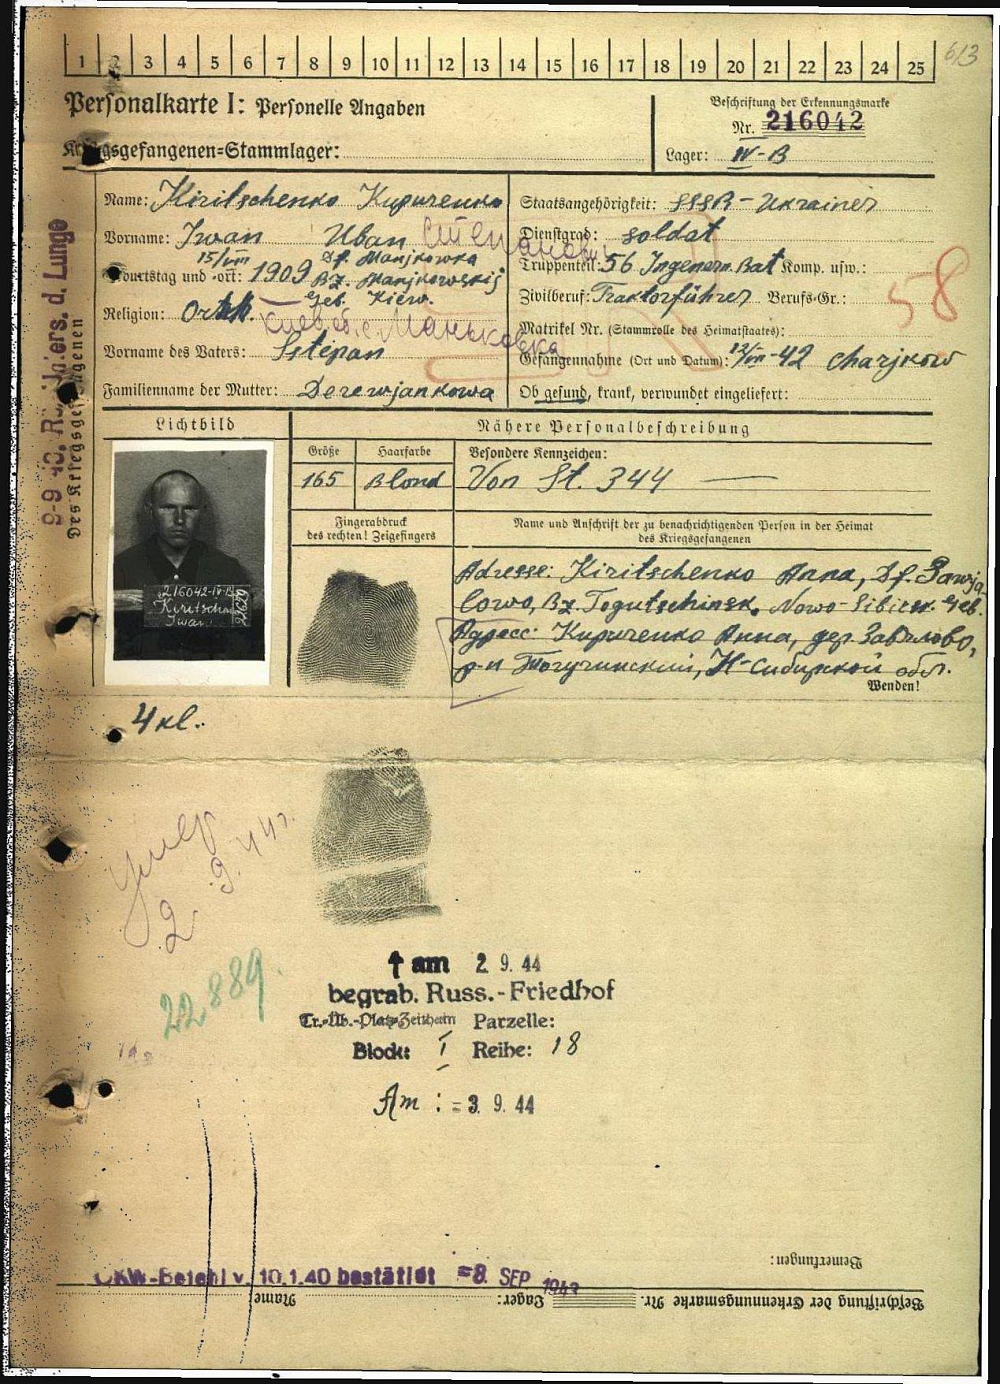 1 2 3 4 5 6 7 8 9 10 11 12 13 14 15 16 17 18 19 20 21 22 23 24 25
613
Personalkarte I: Personelle Angaben
Kriegsgefangenen=Stammlager:
Beschriftung der Erkennungsmarke
Nr. 216042
Lager: IV-B
Name: Kiritschenko Кириченко
Vorname: Iwan Иван Степанович
Geburtstag und -ort: 15/VIII 1909 Df. Manjkowka
Bz. Manjkowskij
Geb. Kiew.
Religion: Orth.
Киев об. с. Маньковка
Vorname des Vaters: Sstepan
Familienname der Mutter: Derewjankowa
Staatsangehörigkeit: SSSR-Ukrainer
Dienstgrad: soldat
Truppenteil: 56 Ingenern. Bat Komp. usw.:
Zivilberuf: Traktorführer Berufs-Gr.:
58
Matrikel Nr. (Stammrolle des Heimatstaates):
Gefangennahme (Ort und Datum): -42 Charjkow
Ob gesund, krank, verwundet eingeliefert:
9-9 43.
d. Lunge
Des Kriegsgefangenen
Lichtbild
Nähere Personalbeschreibung
Größe Haarfarbe Besondere Kennzeichen:
165 Blond Von St. 344
Fingerabdruck
des rechten! Zeigefingers
Name und Anschrift der zu benachrichtigenden Person in der Heimat
des Kriegsgefangenen
216042-IV-B
Kiritschen
Iwan
Adresse: Kiritschenko Anna, Df. Sawja-
lowo, Bz. Togutschinsk, Nowo-Sibirsk. Geb.
Адресс: Кириченко Анна, дер. Завялово,
р-н Тогучинский, Н-Сибирской обл.
Wenden!
4 кл.
Умер
2.9.44г.
22889.
† am 2. 9. 44
begrab. Russ.-Friedhof
Tr.-Üb.-Platz Zeithain Parzelle:
Block: I Reihe: 18
Am: =3. 9. 44
Bemerkungen:
OKW-Befehl v. 10.1.40 bestätigt =8. SEP 1943
Name: Lager: Beschriftung der Erkennungsmarke Nr.